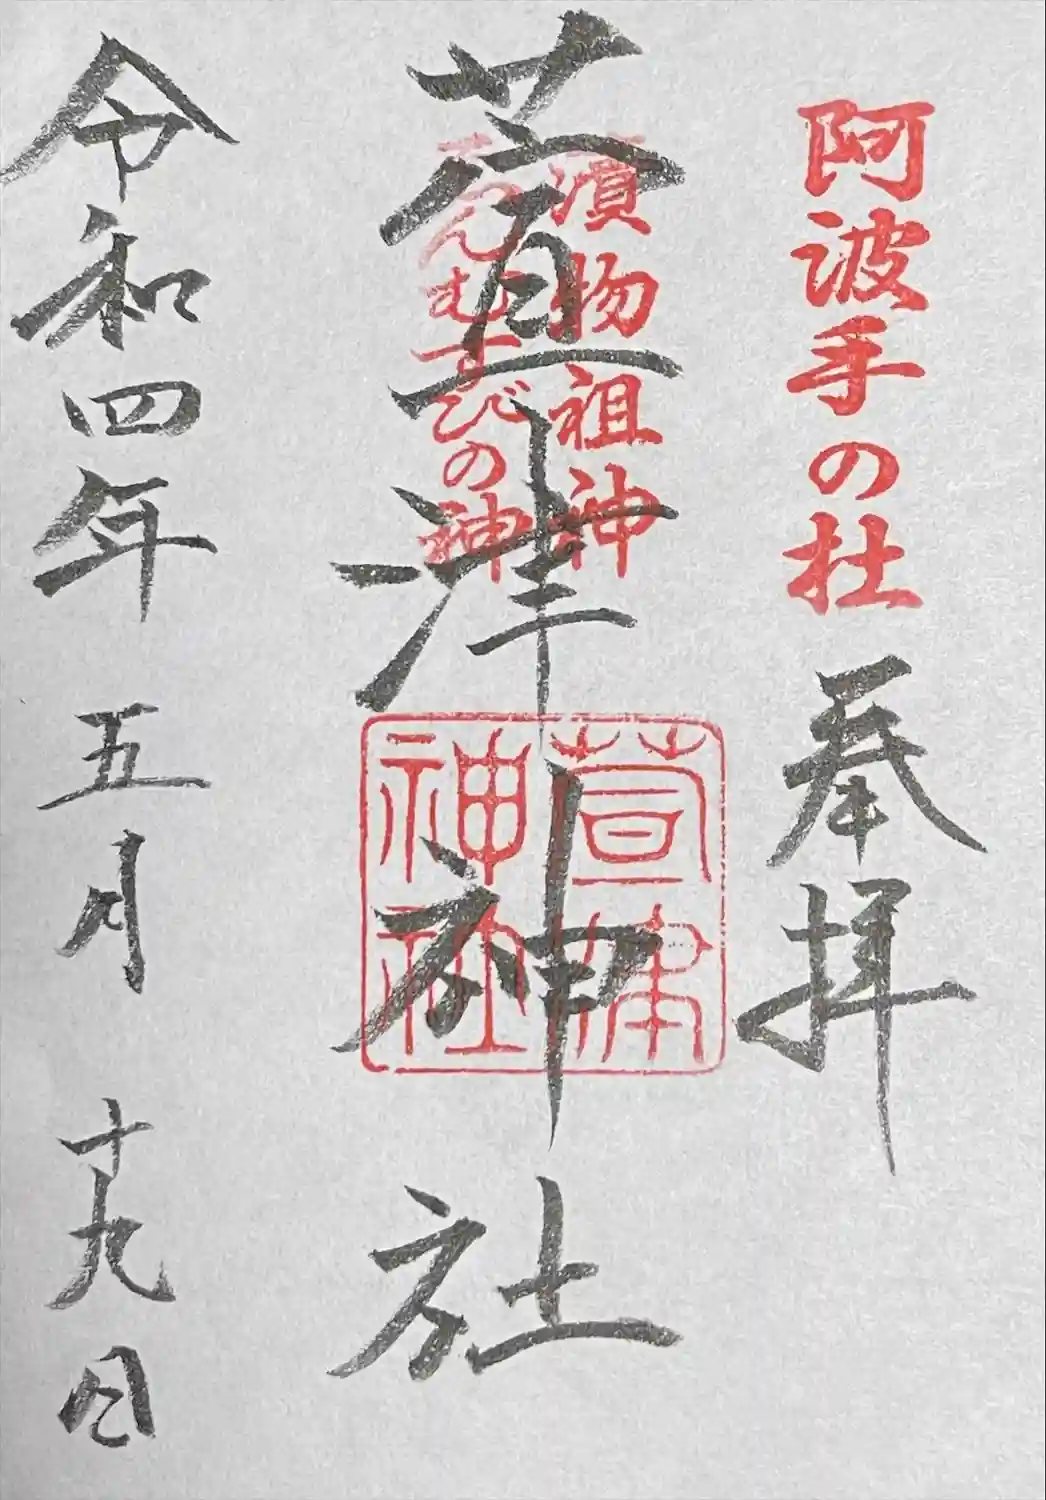 阿波手の杜
奉拝
漬物祖神
えんむすびの神
萱津神社
萱津
神社
令和四年
五月
十九日